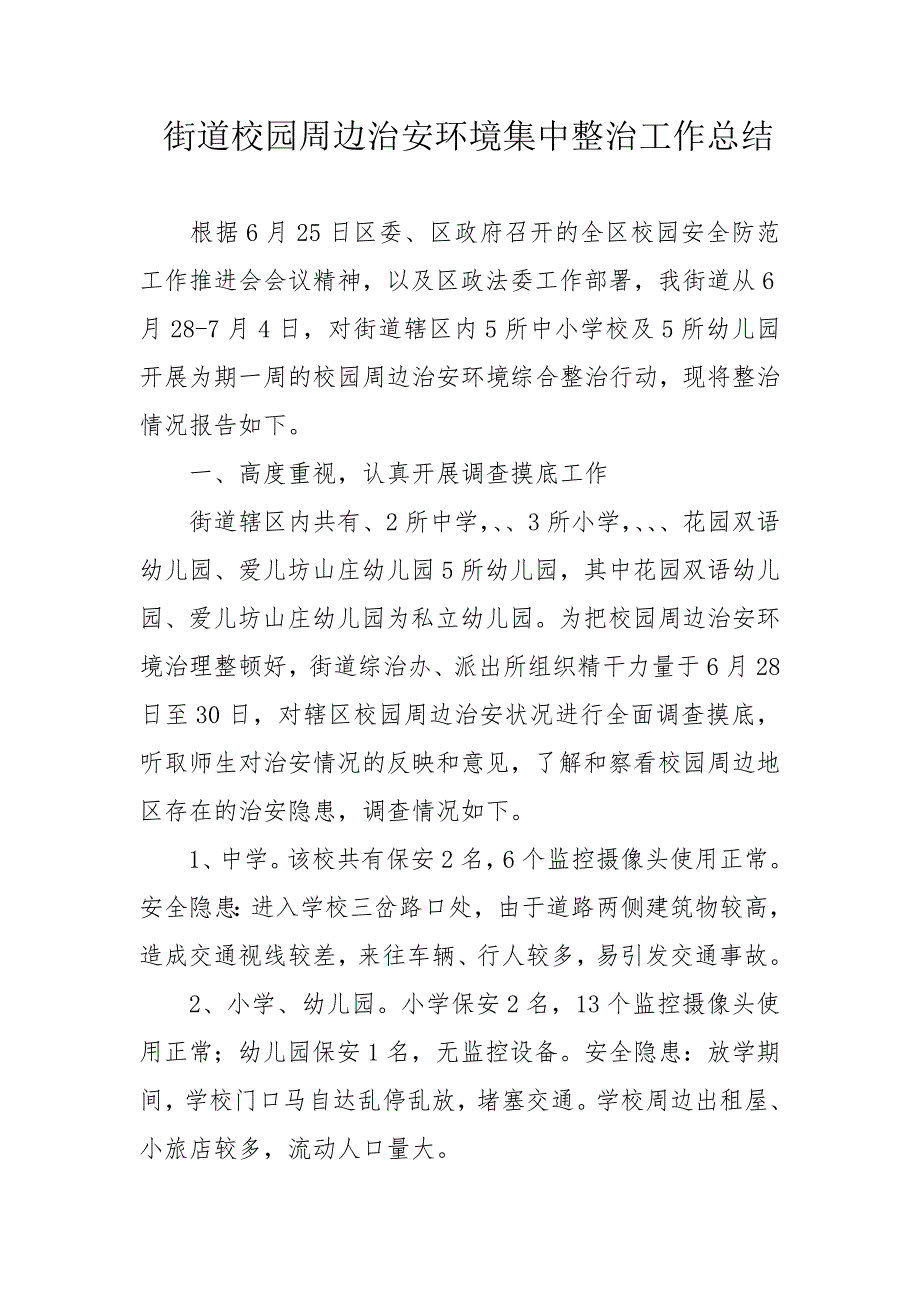 街道校园周边治安环境集中整治工作总结
根据6月25日区委、区政府召开的全区校园安全防范
工作推进会会议精神，以及区政法委工作部署，我街道从6
月28-7月4日，对街道辖区内5所中小学校及5所幼儿园
开展为期一周的校园周边治安环境综合整治行动，现将整治
情况报告如下。
一、高度重视，认真开展调查摸底工作
街道辖区内共有、2所中学，、、3所小学，、、、花园双语
幼儿园、爱儿坊山庄幼儿园5所幼儿园，其中花园双语幼儿
园、爱儿坊山庄幼儿园为私立幼儿园。为把校园周边治安环
境治理整顿好，街道综治办、派出所组织精干力量于6月28
日至30日，对辖区校园周边治安状况进行全面调查摸底，
听取师生对治安情况的反映和意见，了解和察看校园周边地
区存在的治安隐患，调查情况如下。
1、中学。该校共有保安2名，6个监控摄像头使用正常。
安全隐患：进入学校三岔路口处，由于道路两侧建筑物较高，
造成交通视线较差，来往车辆、行人较多，易引发交通事故。
2、小学、幼儿园。小学保安2名，13个监控摄像头使
用正常；幼儿园保安1名，无监控设备。安全隐患：放学期
间，学校门口马自达乱停乱放，堵塞交通。学校周边出租屋、
小旅店较多，流动人口量大。